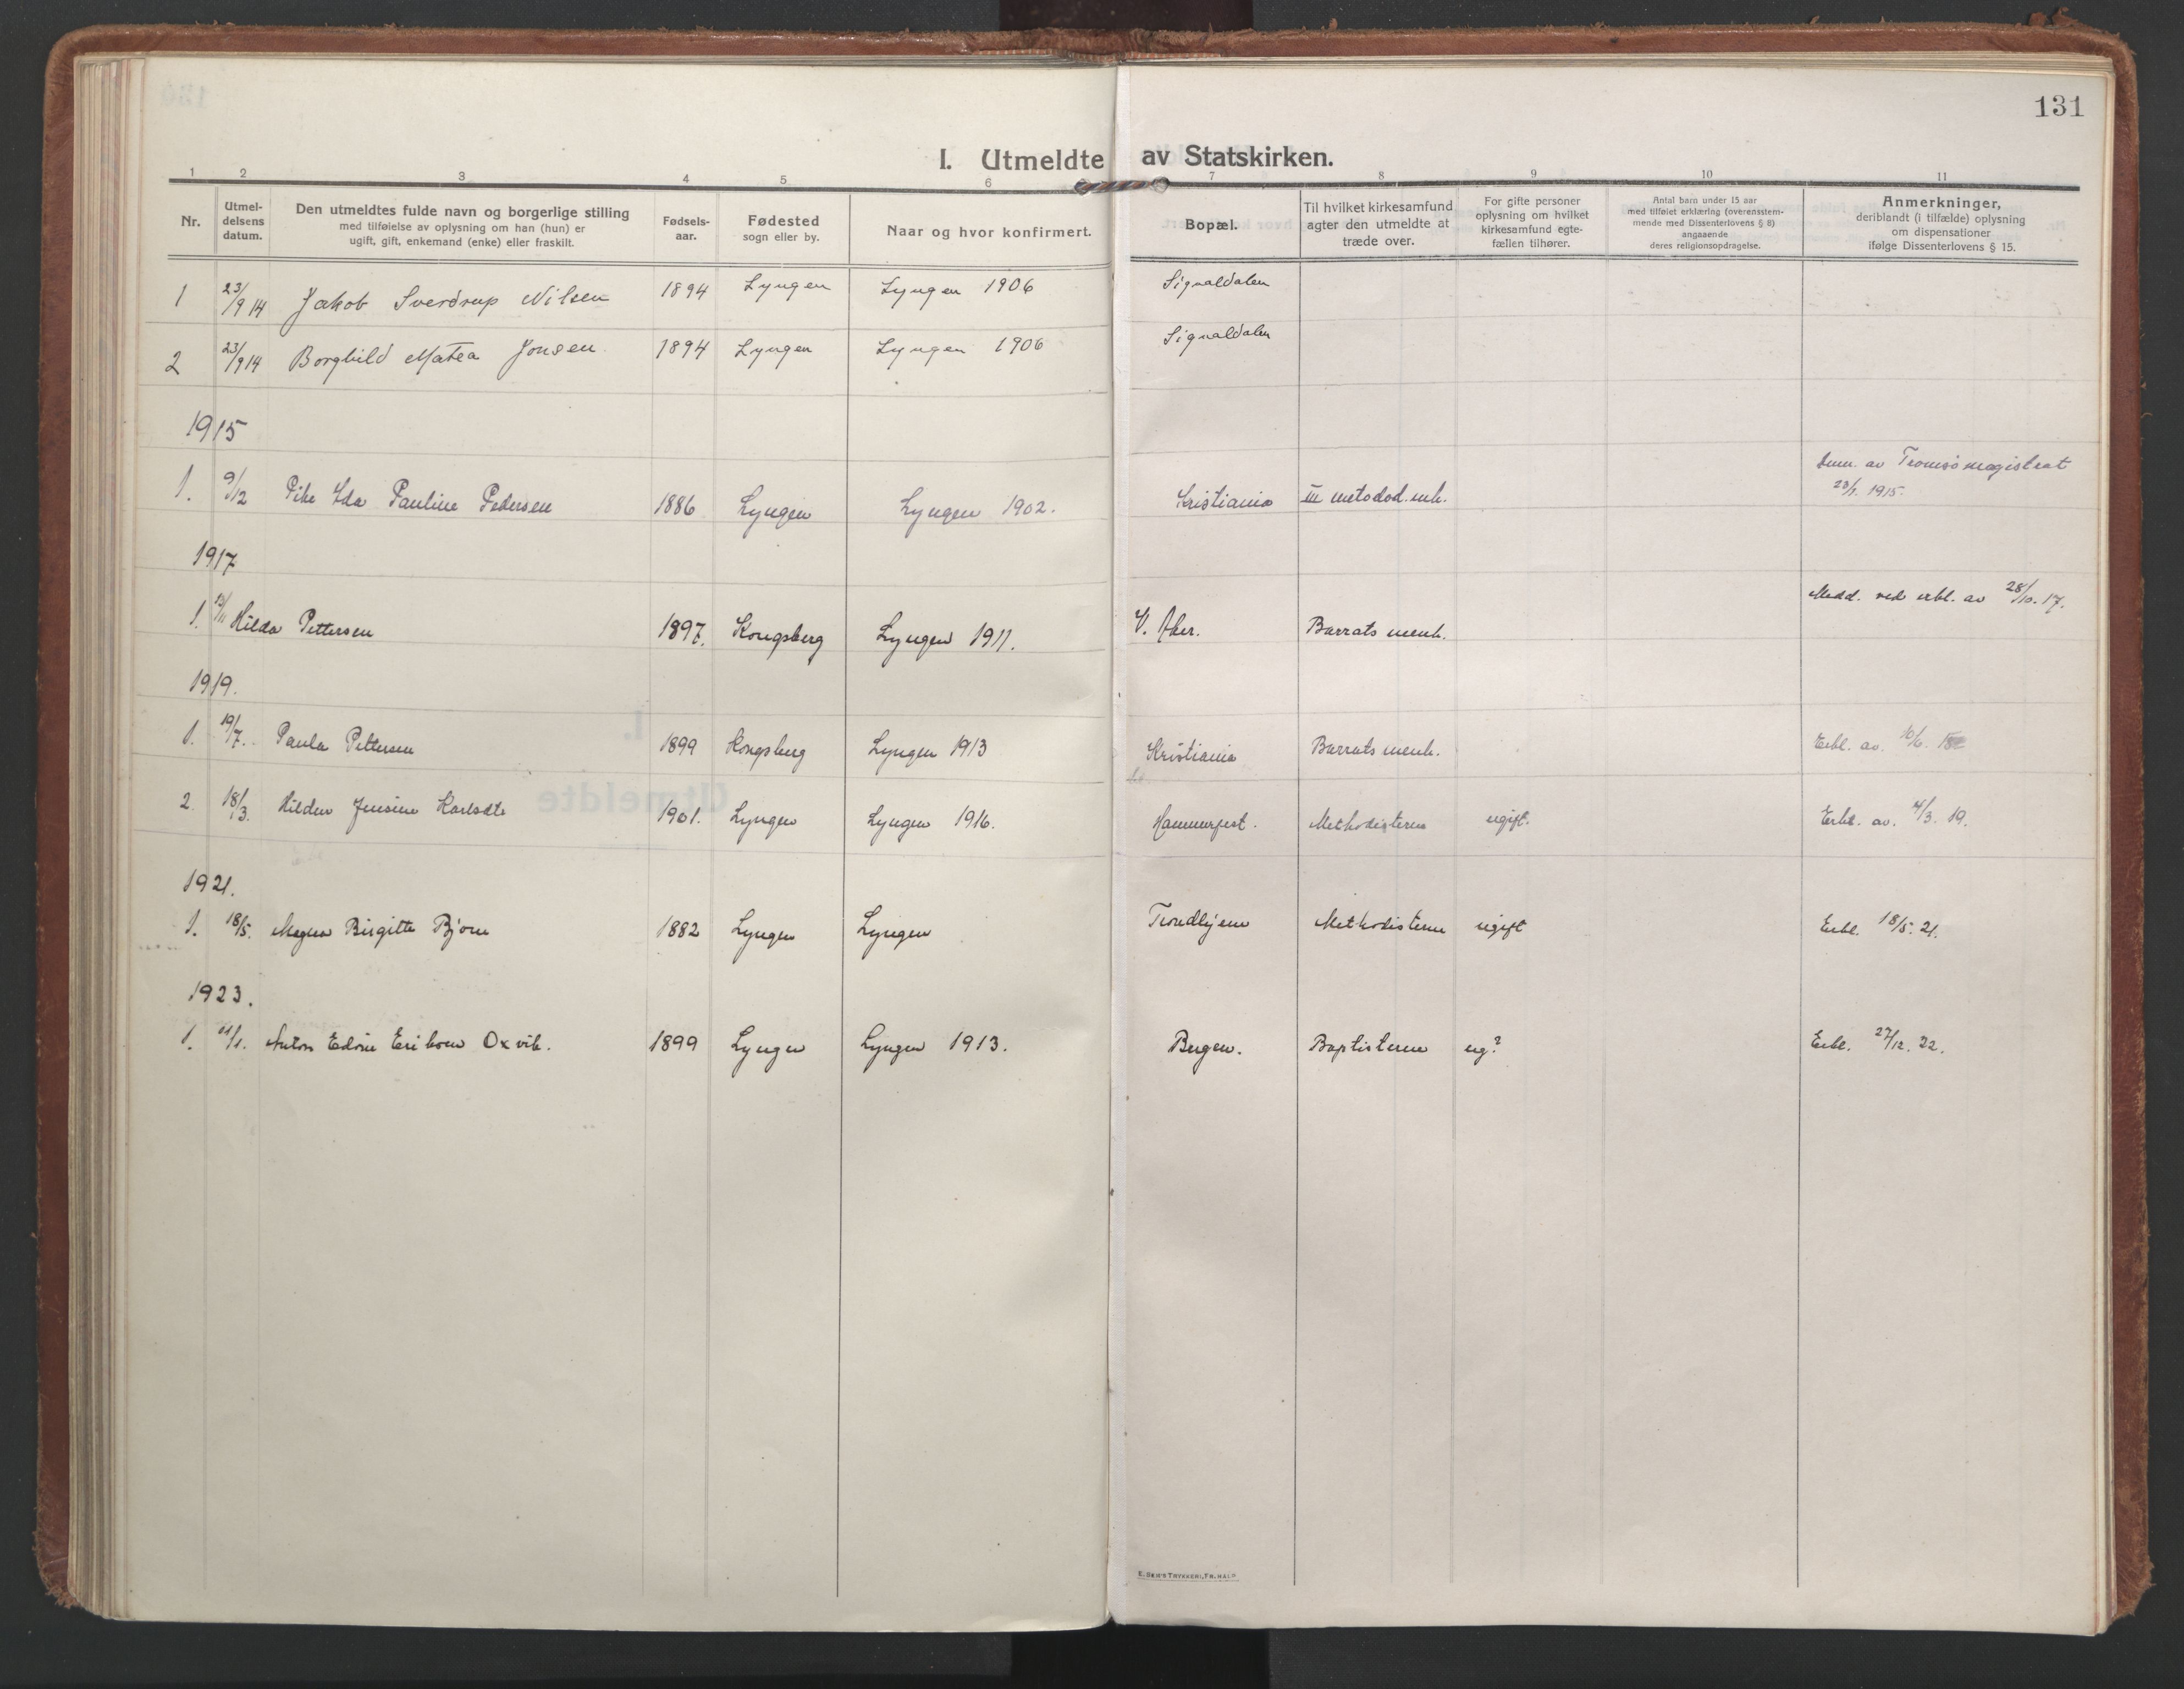 131
I. Utmeldte av Statskirken.
1 2 3 4 5 6 7 8 9 10 11
Nr.
Utmel-
delsens
datum.
Den utmeldtes fulde navn og borgerlige stilling
med tilføielse av oplysning om han (hun) er
ugift, gift, enkemand (enke) eller fraskilt.
Fødsels-
aar.
Fødested
sogn eller by.
Naar og hvor konfirmert.
Bopæl.
Til hvilket kirkesamfund
agter den utmeldte at
træde over.
For gifte personer
oplysning om hvilket
kirkesamfund egte-
fællen tilhører.
Antal barn under 15 aar
med tilføiet erklæring (overensstem-
mende med Dissenterlovens § 8)
angaaende
deres religionsopdragelse.
Anmerkninger,
deriblandt (i tilfælde) oplysning
om dispensationer
ifølge Dissenterlovens § 15.
1 23/9 14 Jakob Sverdrup Nilsen 1894 Lyngen Lyngen 1906 Signaldalen
2 23/9 14 Borghild Matea Jonsen 1894 Lyngen Lyngen 1906 Signaldalen
1915
1. 9/12 Pike Ida Pauline Pedersen 1886 Lyngen Lyngen 1902. Kristiania III metodod. mh. av Tromsö magistrat
23/1. 1915.
1917
1. Hilda Pettersen 1897. Kongsberg Lyngen 1911. V. Aker. Barrats menh. Medd. ved erkl. av 28/10. 17.
1919.
1. 19/7. Paula Pettersen 1899 Kongsberg Lyngen 1913 Kristiania Barrats menh. Erkl. av. 10/6.
2. 18/3. Hildur Jensine Karlsdtr 1901. Lyngen Lyngen 1916. Hammerfest. Methodisterne ugift. Erkl. av. 4/3. 19.
1921.
1. 18/5. Magna Birgitte Bjørn 1882 Lyngen Lyngen Trondhjem Methodisterne ugift Erkl. 18/5. 21.
1923.
1. 11/1. Anton Edvin Erikson Oxvik. 1899 Lyngen Lyngen 1913. Bergen. Baptisterne ug? Erkl. 27/12. 22.
E. SEM'S TRYKKERI, FR.HALD